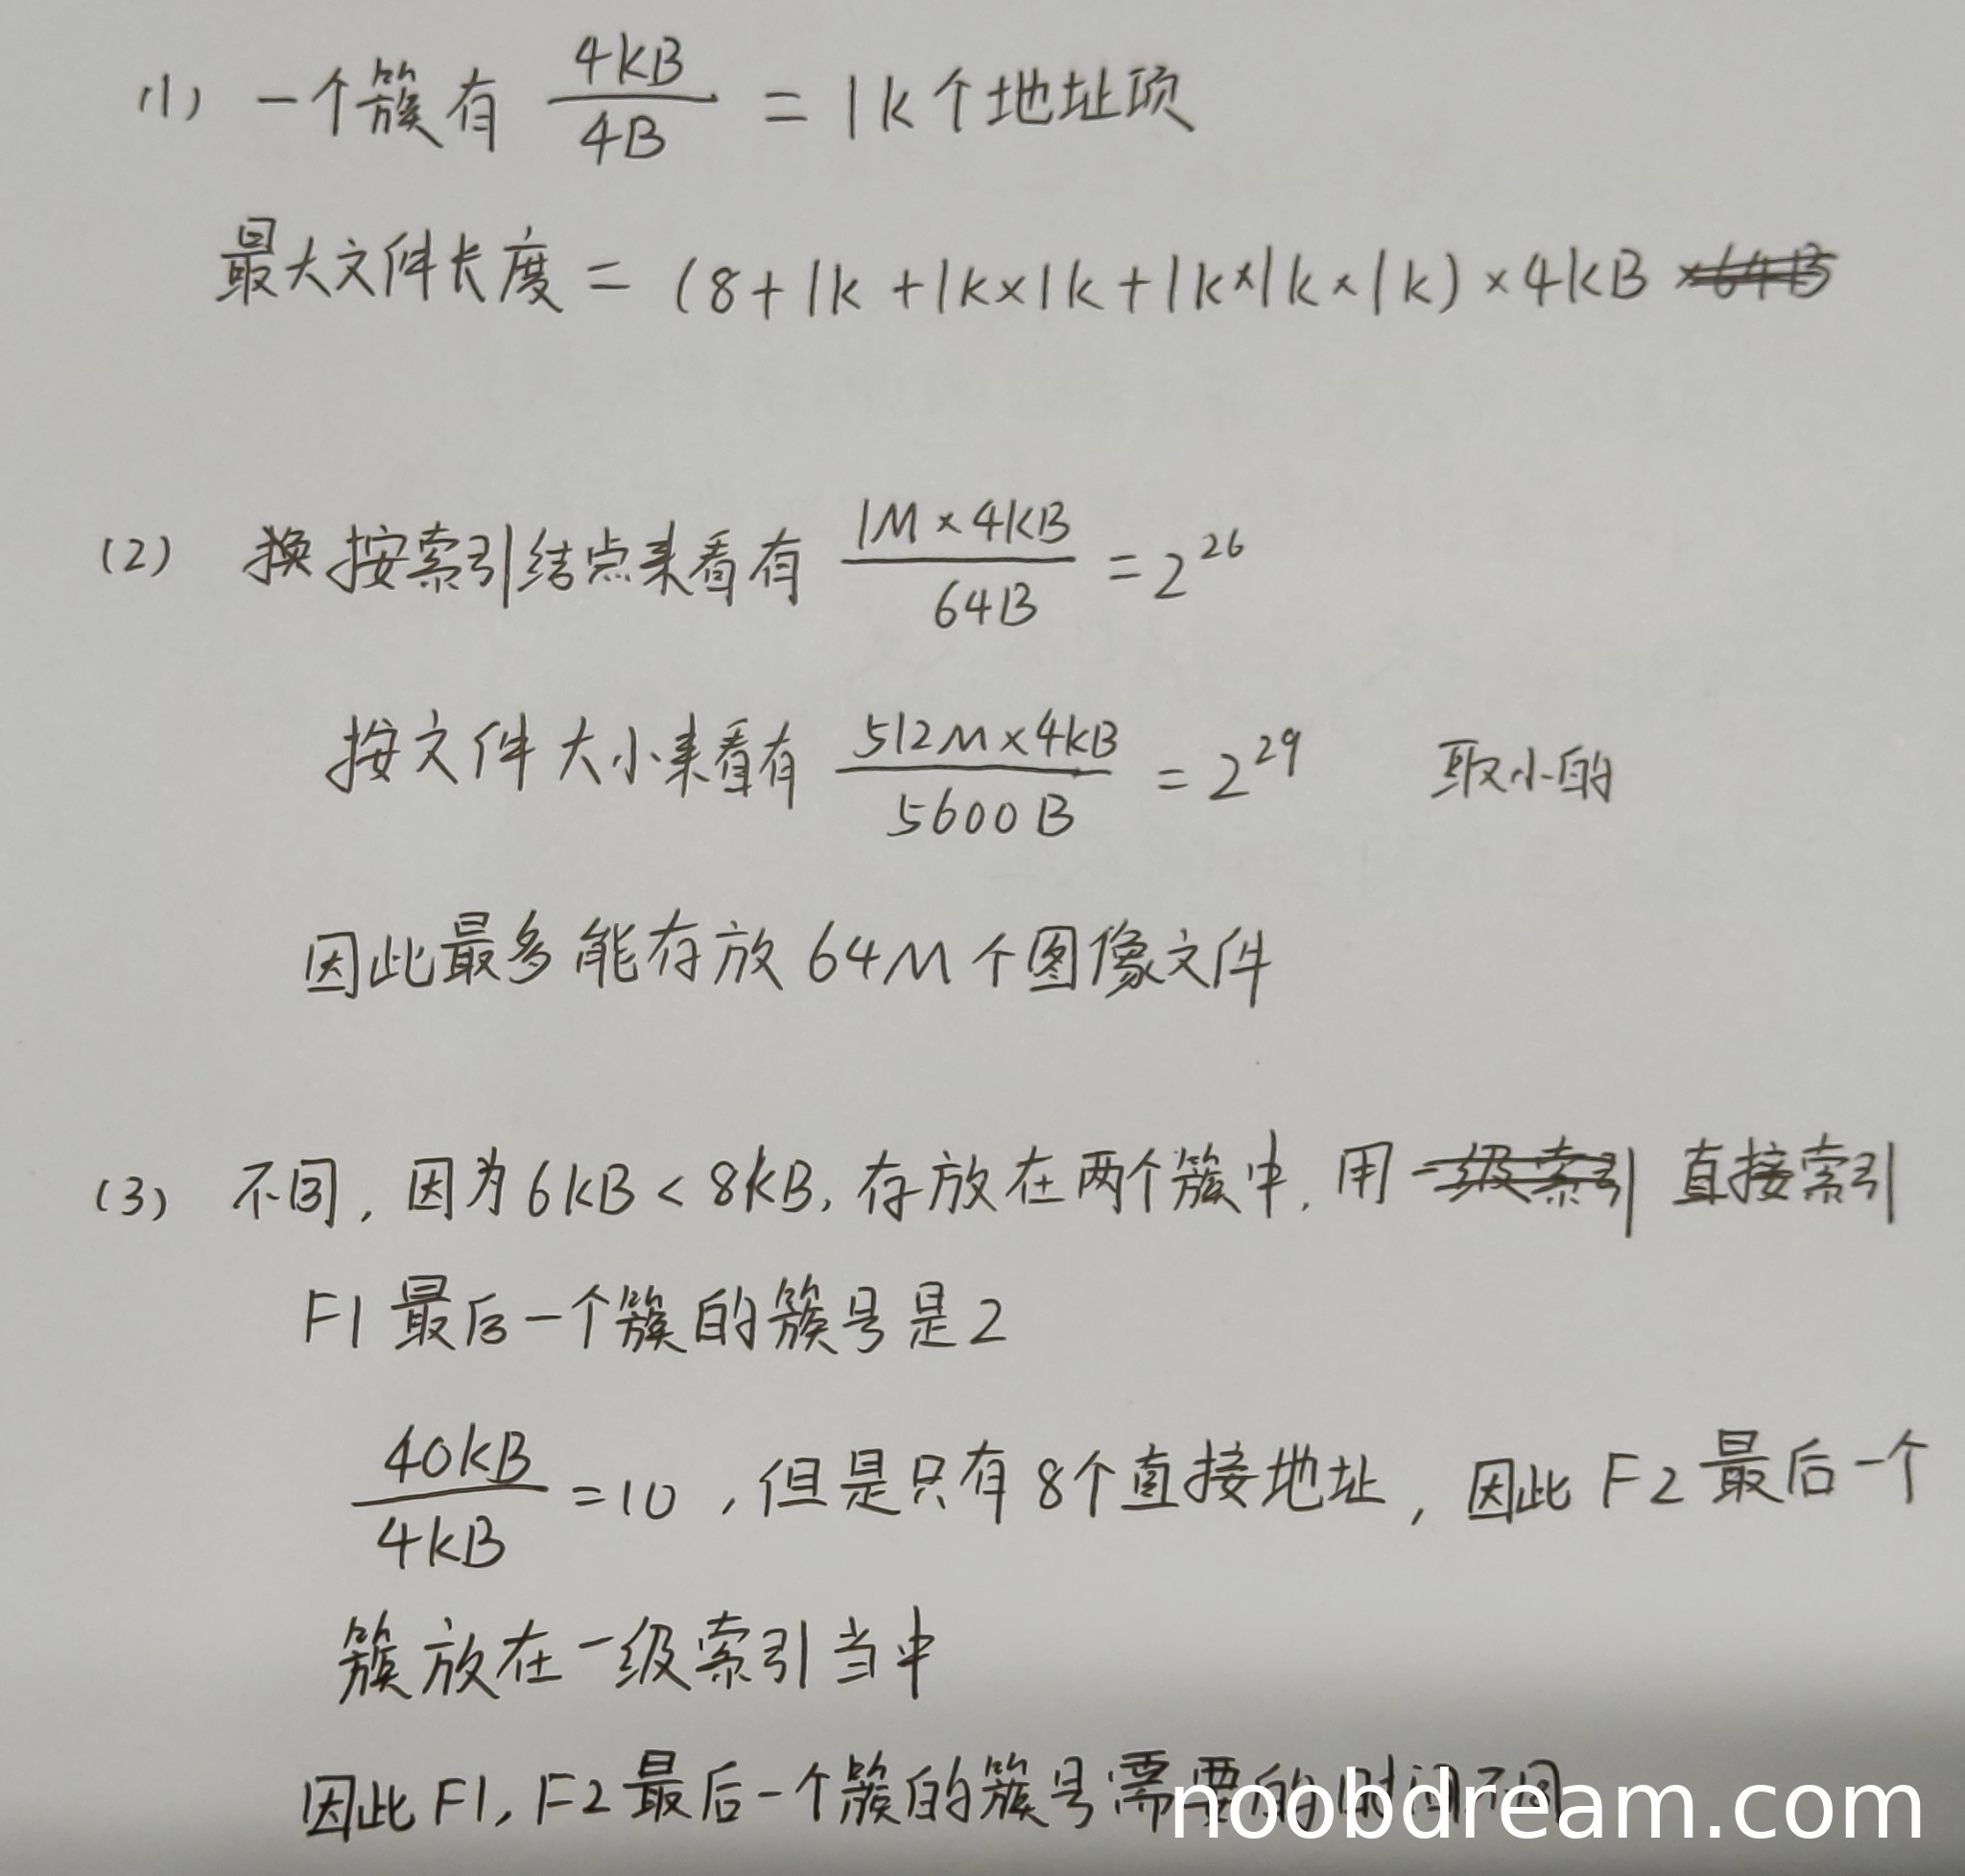 (1) 一个簇有 4KB/4B = 1K个地址项
最大文件长度 = (8+1K+1K×1K+1K×1K×1K)×4KB
(2) 换 按索引结点来看有 1M×4KB/64B = 2^26
按文件大小来看有 512M×4KB/5600B = 2^29 取小的
因此最多能存放64M个图像文件
(3) 不同, 因为6KB<8KB, 存放在两个簇中, 用 一级索引 直接索引
F1最后一个簇的簇号是2
40KB/4KB = 10, 但是只有8个直接地址, 因此F2最后一个
簇放在一级索引当中
因此F1, F2最后一个簇的簇号需要的时间不同
noobdream.com